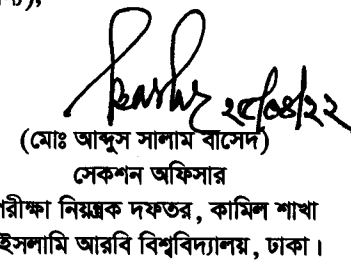 ২৫/০৪/২২
(মোঃ আব্দুস সালাম বাসেদ)
সেকশন অফিসার
পরীক্ষা নিয়ন্ত্রক দফতর, কামিল শাখা
ইসলামি আরবি বিশ্ববিদ্যালয়, ঢাকা।